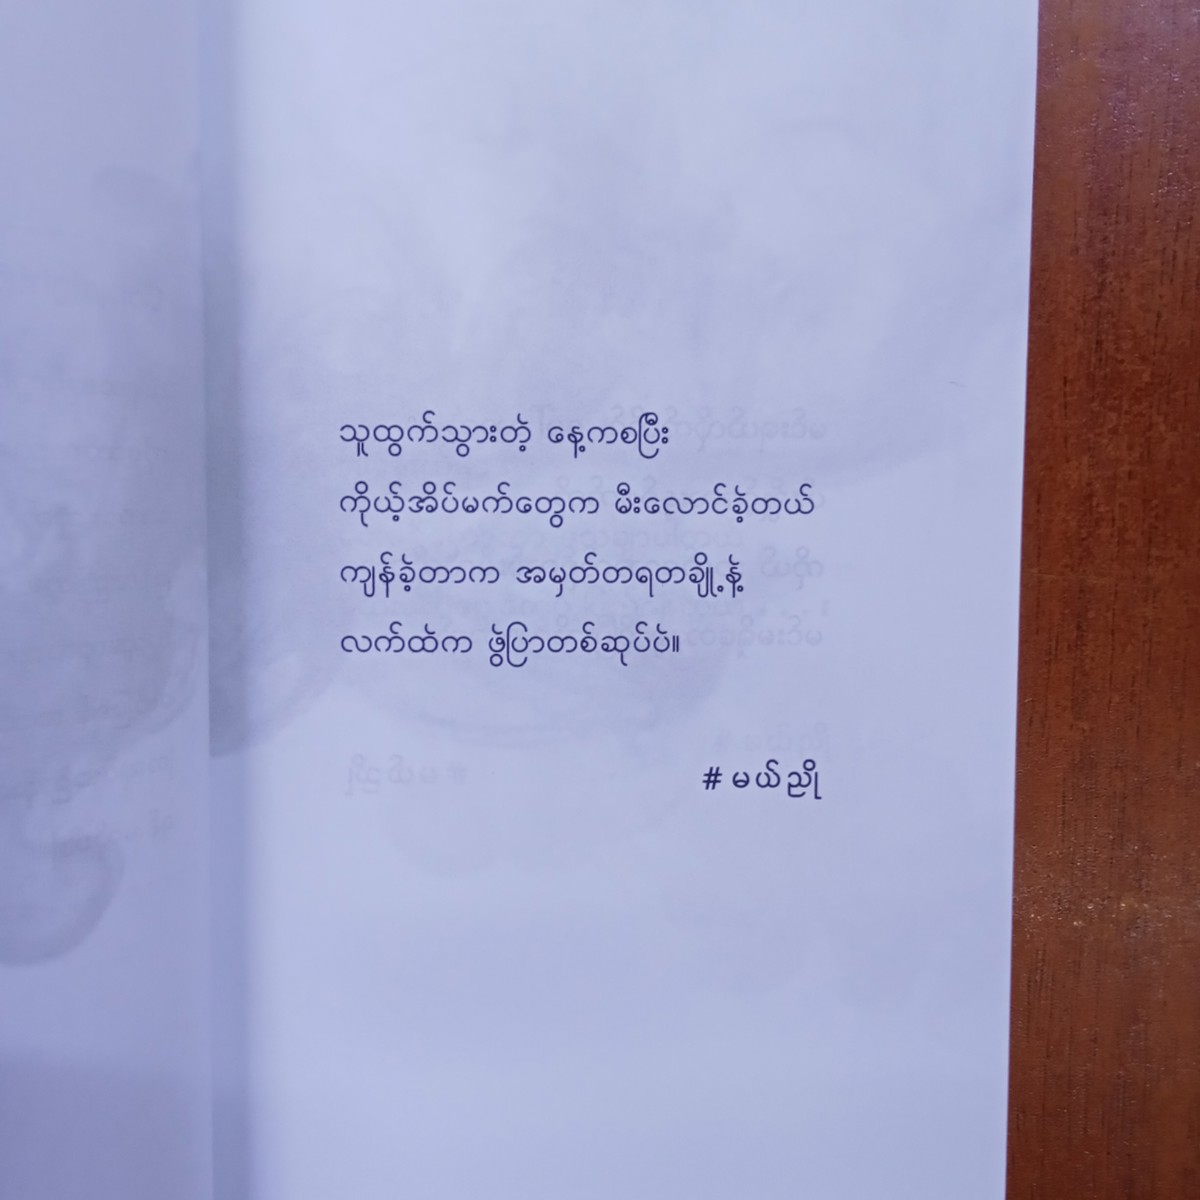 သူထွက်သွားတဲ့ နေ့ကစပြီး
ကိုယ့်အိပ်မက်တွေက မီးလောင်ခဲ့တယ်
ကျန်ခဲ့တာက အမှတ်တရတချို့နဲ့
လက်ထဲက ဖွဲပြာတစ်ဆုပ်ပဲ။
# မယ်ညို